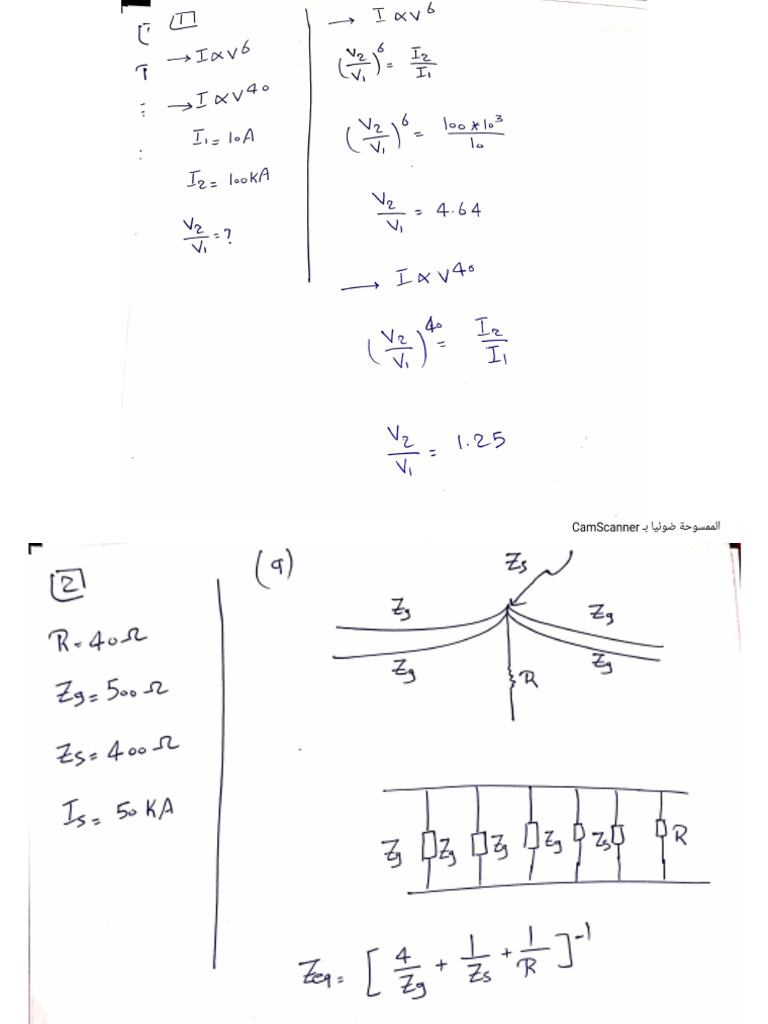 [1]
→ I∝V⁶
→ I∝V⁴⁰
I₁=10A
I₂=100kA
V₂/V₁=?
→ I∝V⁶
(V₂/V₁)⁶= I₂/I₁
(V₂/V₁)⁶= 100*10³/10
V₂/V₁ = 4.64
→ I∝V⁴⁰
(V₂/V₁)⁴⁰= I₂/I₁
V₂/V₁ = 1.25
الممسوحة ضوئيا بـ CamScanner
[2]
R=40Ω
Zg=500Ω
Zs=400Ω
Is=50KA
(a)
Zs
Zg Zg
Zg Zg
R
Zg Zg Zg Zg Zs R
Zeq= [4/Zg + 1/Zs + 1/R]⁻¹